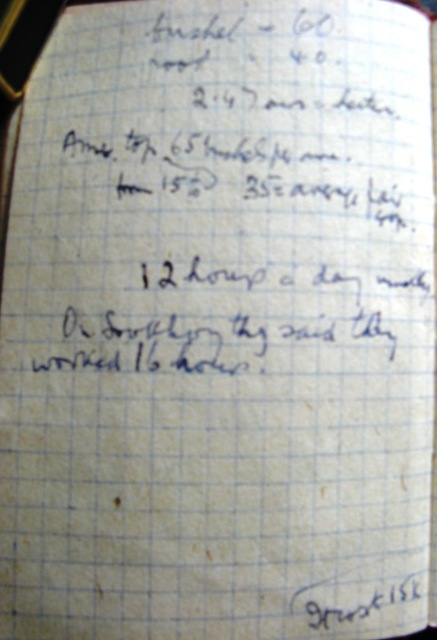 bushel = 60
root " 40.
2.47 acres = hectare.
Amer. top 65 bushels per acre.
from 15 to 35 = average fair
crop.
12 hours a day mostly
On they said they
worked 16 hours.
15k